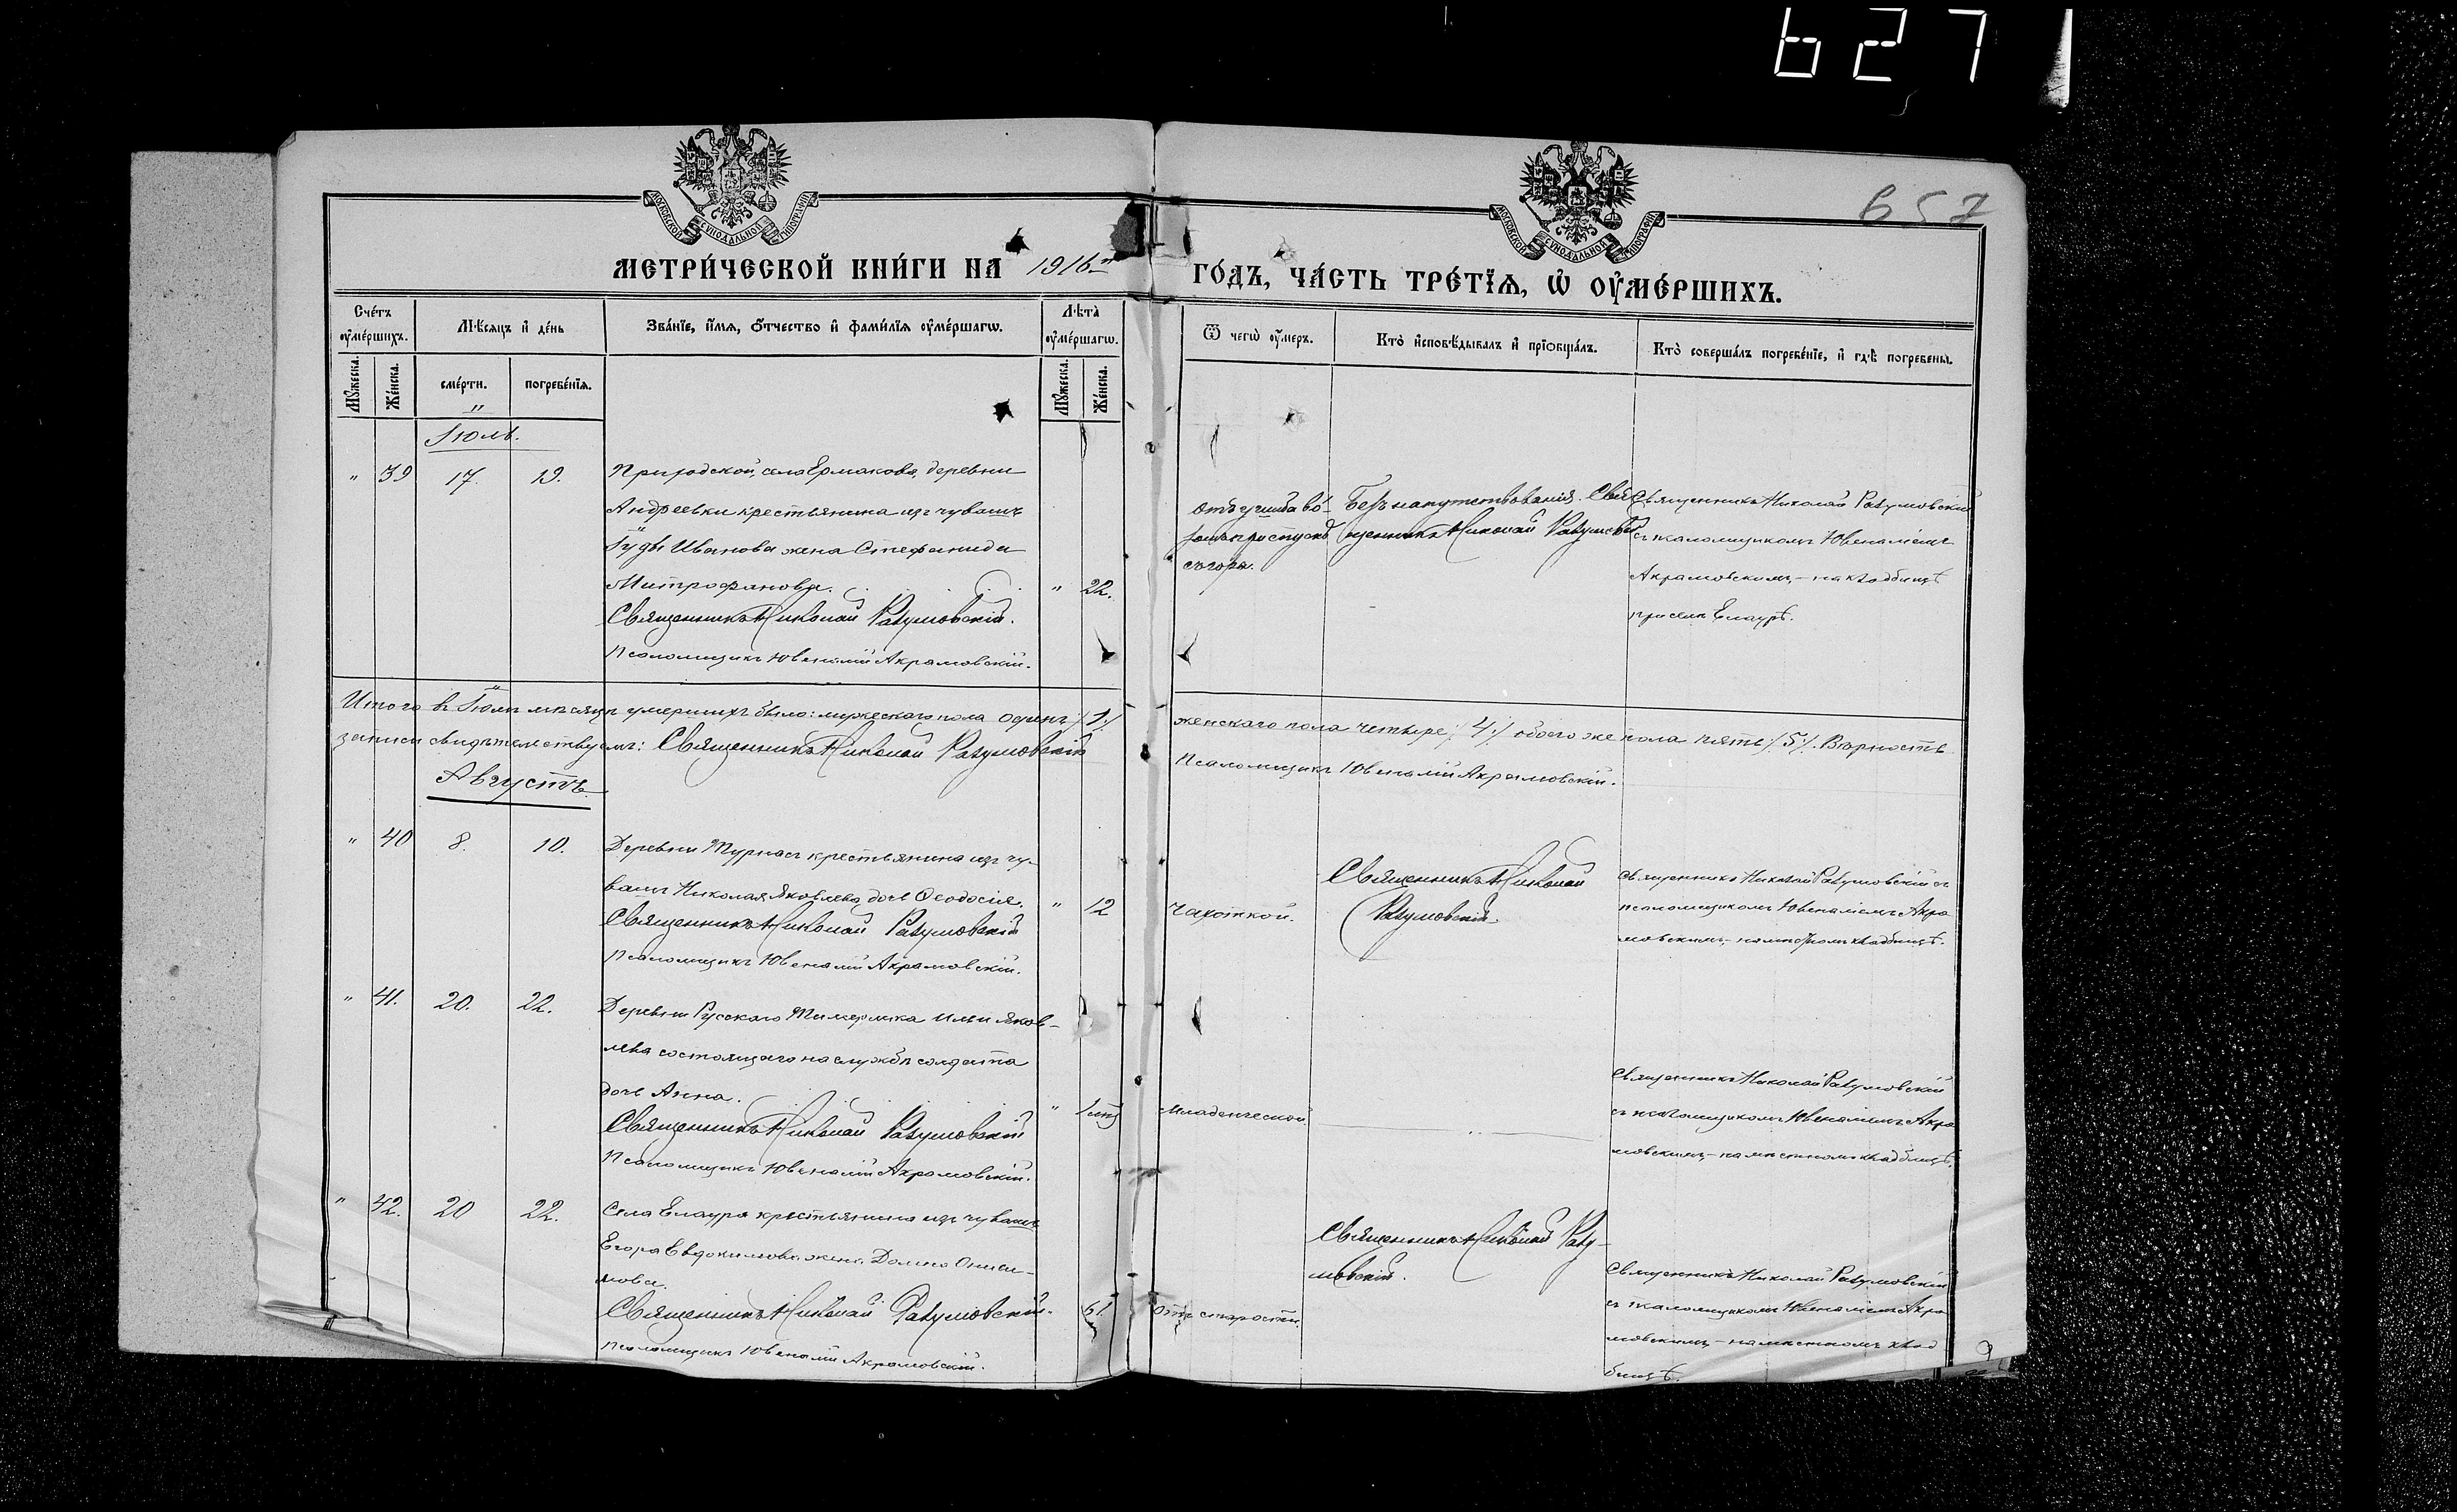 627
657
МОСКОВСКОЙ СѴНОДАЛЬНОЙ ТИПОГРАФІИ
МОСКОВСКОЙ СѴНОДАЛЬНОЙ ТИПОГРАФІИ
МЕТРИ́ЧЕСКОЙ КНИ́ГИ НА 1916й
ГО́ДЪ, ЧА́СТЬ ТРЕ́ТЇѦ, Ѡ҆ ОУ҆МЕ́РШИХЪ.
Сче́тъ оу҆ме́ршихъ.
Мꙋ́жеска.
Же́нска.
Мѣ́сяцъ и҆ де́нь
сме́рти.
погребе́нїѧ.
Зва́нїе, и҆́мѧ, ѻ҆́тчество и҆ фами́лїѧ оу҆ме́ршагѡ.
Лѣ́та оу҆ме́ршагѡ.
Мꙋ́жеска.
Же́нска.
Ѿ чегѡ̀ оу҆́меръ.
Кто̀ и҆сповѣ́дывалъ и҆ прїѡбща́лъ.
Кто̀ соверша́лъ погребе́нїе, и҆ гдѣ̀ погребены̀.
Іюль.
" 39 17. 19. Приходской, села Ермакова, деревни
Андреевки крестьянина изъ чувашъ
Іуды Иванова жена Стефанида
Митрофанова. " 22.
Священникъ Николай Разумовскій.
Псаломщикъ Ювеналій Акрамовскій.
Отъ ушиба
съ горы.
Безъ напутствованія. Свя-
щенникъ Николай Разумовскій
Священникъ Николай Разумовскій
съ псаломщикомъ Ювеналіемъ
Акрамовскимъ, – на кладбищѣ
при селѣ Елаурѣ.
Итого въ Іюлѣ мѣсяцѣ умершихъ было: мужескаго пола одинъ /1./ женскаго пола четыре /4./ обоего же пола пять /5./. Вѣрность
записи свидѣтельствуемъ: Священникъ Николай Разумовскій Псаломщикъ Ювеналій Акрамовскій.
Августъ
" 40 8. 10. Деревни Турнасъ крестьянина изъ чу-
вашъ Николая Яковлева дочь Ѳеодосія. " 12
Священникъ Николай Разумовскій
Псаломщикъ Ювеналій Акрамовскій.
Чахоткой.
Священникъ Николай
Разумовскій.
Священникъ Николай Разумовскій съ
псаломщикомъ Ювеналіемъ Акра
мовскимъ, – на мѣстномъ кладбищѣ.
" 41. 20. 22. Деревни Русскаго Тимеряка Ильи Яков-
лева состоящаго на службѣ солдата
дочь Анна. "
Священникъ Николай Разумовскій
Псаломщикъ Ювеналій Акрамовскій.
Младенческой
Священникъ Николай Разумовскій
съ псаломщикомъ Ювеналіемъ Акра
мовскимъ, – на мѣстномъ кладбищѣ.
" 42. 20 22. Села Елаура крестьянина изъ чувашъ
Егора Евдокимова жена Домна Ониси-
мова.
Священникъ Николай Разумовскій. 61.
Псаломщикъ Ювеналій Акрамовскій.
Отъ старости.
Священникъ Николай Разу-
мовскій.
Священникъ Николай Разумовскій
съ псаломщикомъ Ювеналіемъ Акра
мовскимъ, – на мѣстномъ клад
бищѣ.